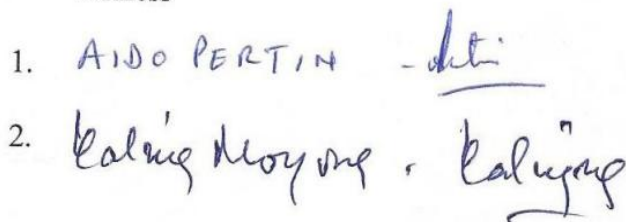 1. AIDO PERTIN -
2. Kaling Moyong .